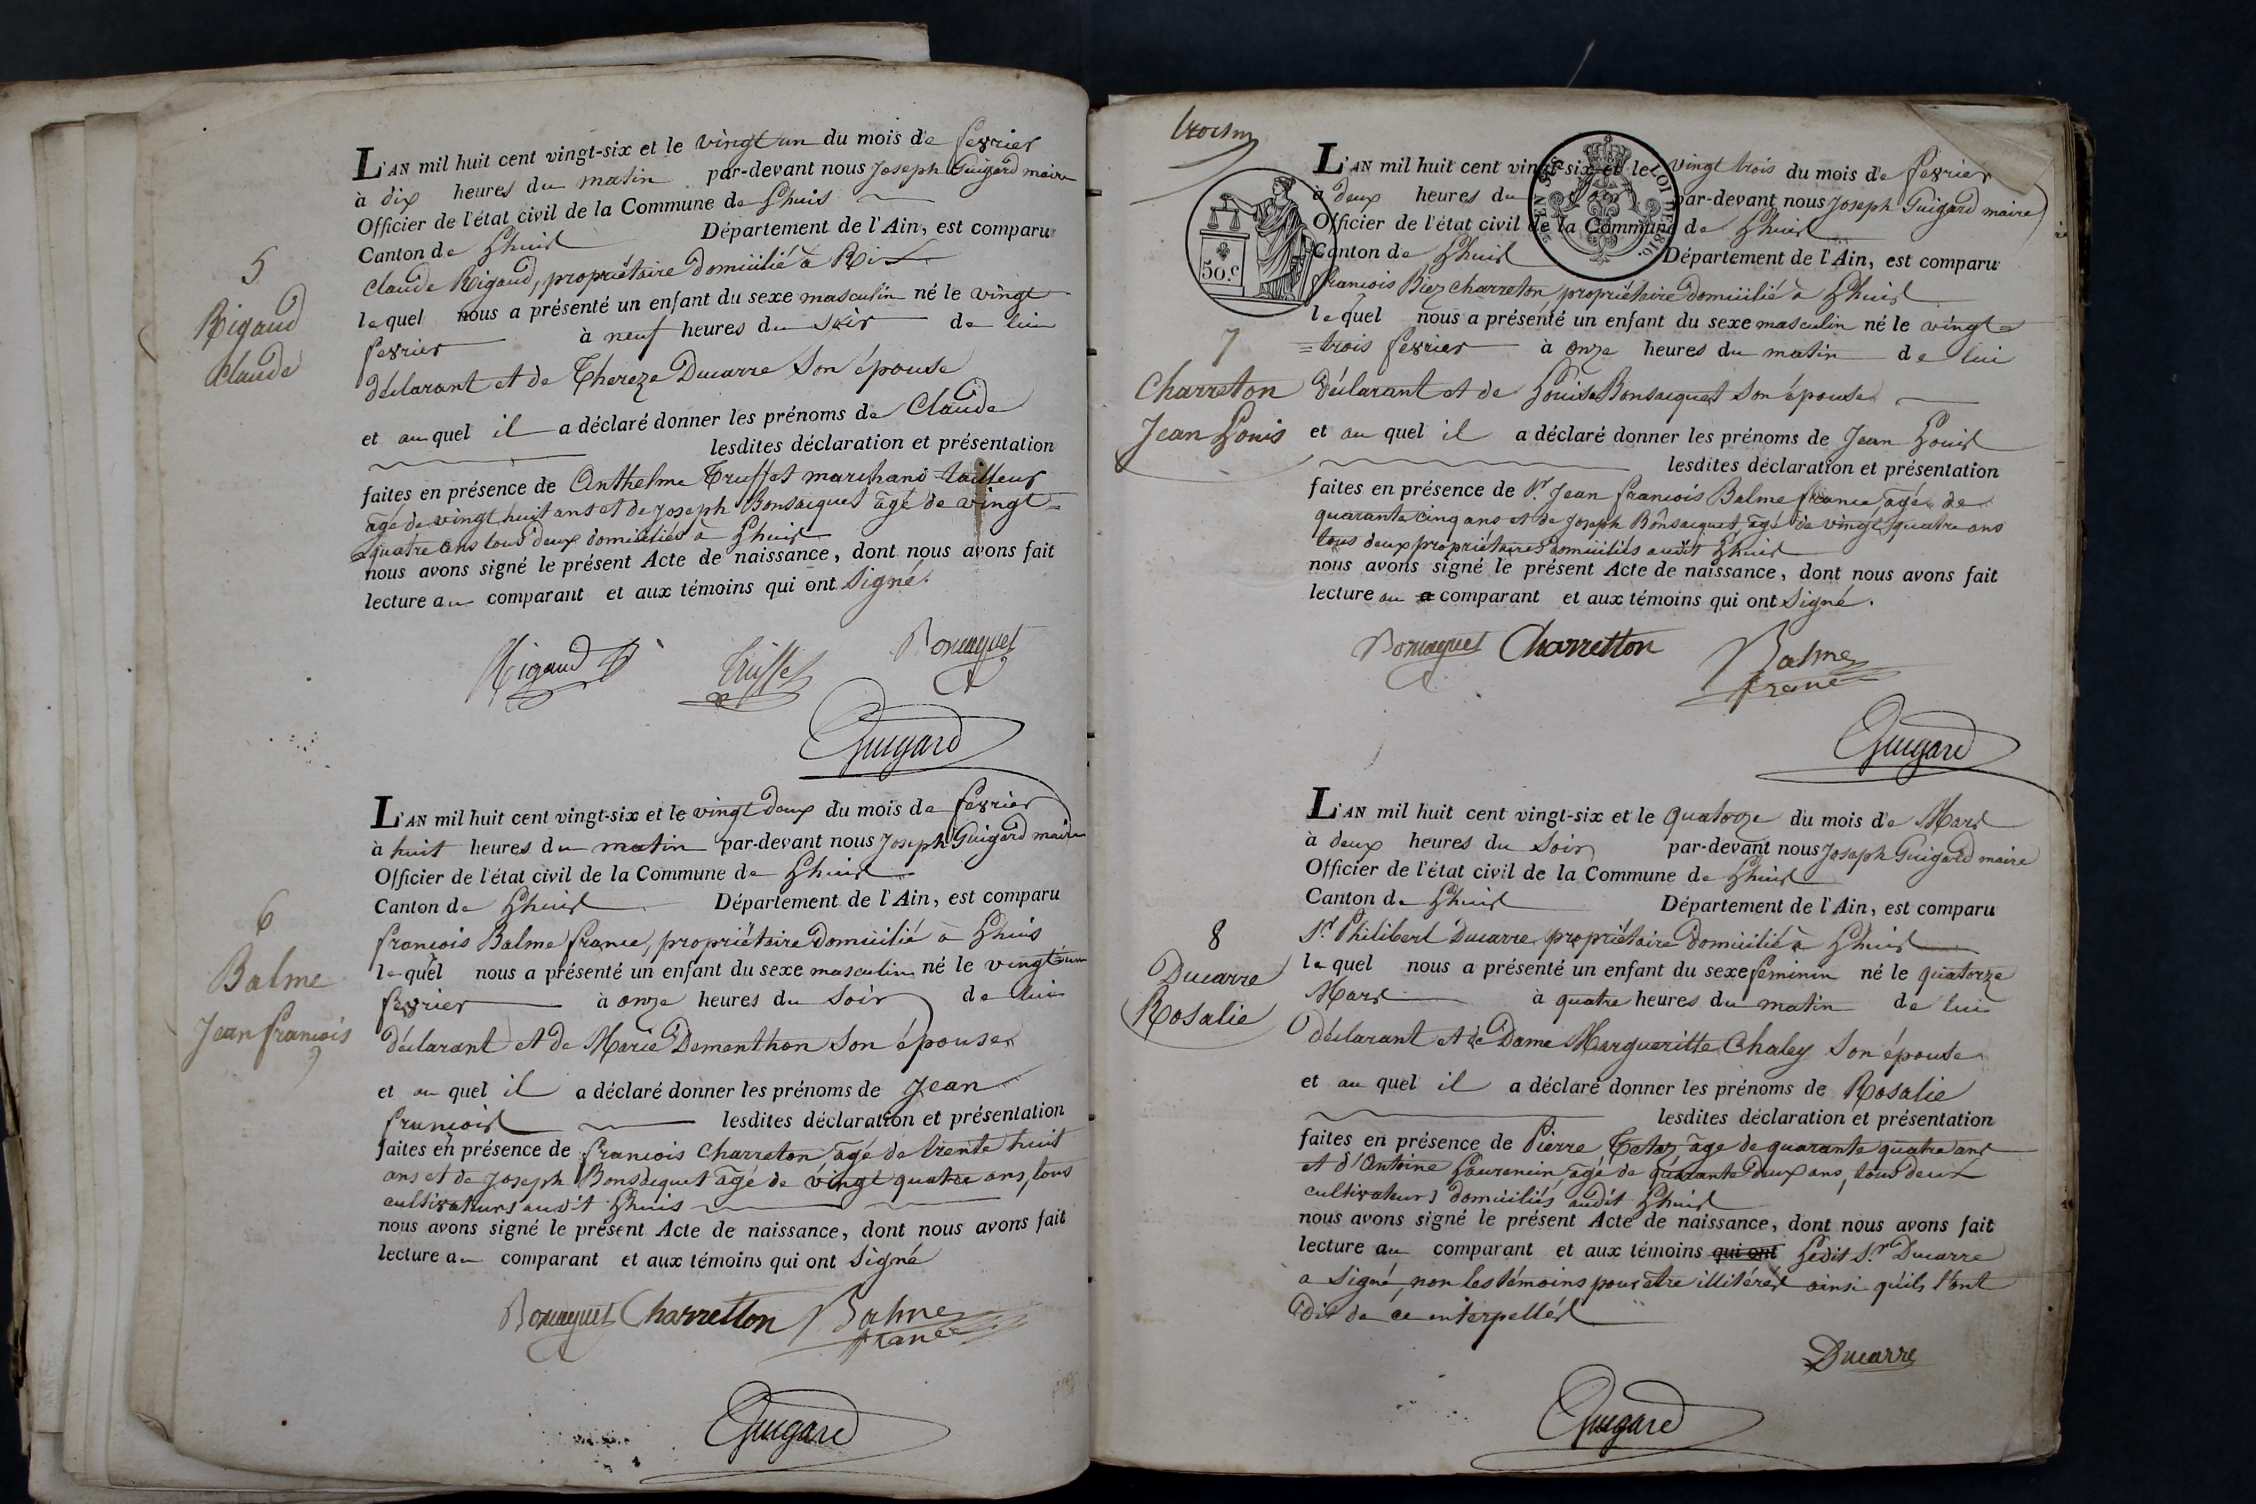 5
Rigaud
Claude
L'AN mil huit cent vingt-six et le vingt un du mois de fevrier
à dix heures du matin par-devant nous Joseph Guigard maire
Officier de l'état civil de la Commune de Lhuis
Canton de Lhuis Département de l'Ain, est comparu
Claude Rigaud, propriétaire domicilié à Rix
lequel nous a présenté un enfant du sexe masculin né le vingt
fevrier à neuf heures du soir de lui
déclarant et de Thereze Ducarre son épouse
et auquel il a déclaré donner les prénoms de Claude
lesdites déclaration et présentation
faites en présence de Anthelme Truffet marchand tailleur
agé de vingt huit ans et de Joseph Bonsacquet agé de vingt=
=quatre ans tous deux domiciliés à Lhuis
nous avons signé le présent Acte de naissance, dont nous avons fait
lecture au comparant et aux témoins qui ont signé.
Rigaud Truffet Bonsaquet
Guigard
6
Balme
Jean francois
L'AN mil huit cent vingt-six et le vingt deux du mois de fevrier
à huit heures du matin par-devant nous Joseph Guigard maire
Officier de l'état civil de la Commune de Lhuis
Canton de Lhuis Département de l'Ain, est comparu
francois Balme france, propriétaire domicilié à Lhuis
lequel nous a présenté un enfant du sexe masculin né le vingt un
fevrier à onze heures du soir de lui
déclarant et de Marie Dementhon son épouse
et au quel il a déclaré donner les prénoms de Jean
francois lesdites déclaration et présentation
faites en présence de francois Charreton agé de trente huit
ans et de Joseph Bonsacquet agé de vingt quatre ans, tous
cultivateurs audit Lhuis
nous avons signé le présent Acte de naissance, dont nous avons fait
lecture au comparant et aux témoins qui ont signé
Bonsaquet Charretton Balme
france
Guigard
50.c
LOI DE 1816.
7
Charreton
Jean Louis
L'AN mil huit cent vingt-six et le vingt trois du mois de fevrier
à deux heures du soir par-devant nous Joseph Guigard maire
Officier de l'état civil de la Commune de Lhuis
Canton de Lhuis Département de l'Ain, est comparu
francois Biez charreton, propriétaire domicilié à Lhuis
lequel nous a présenté un enfant du sexe masculin né le vingt=
=trois fevrier à onze heures du matin de lui
déclarant et de Louise Bonsacquet son épouse
et au quel il a déclaré donner les prénoms de Jean Louis
lesdites déclaration et présentation
faites en présence de Sr. Jean francois Balme france, agé de
quarante cinq ans et de Joseph Bonsacquet agé de vingt quatre ans
tous deux propriétaires domiciliés audit Lhuis
nous avons signé le présent Acte de naissance, dont nous avons fait
lecture au comparant et aux témoins qui ont signé.
Bonsaquet Charretton Balme
france
Guigard
8
Ducarre
Rosalie
L'AN mil huit cent vingt-six et le quatorze du mois de Mars
à deux heures du soir par-devant nous Joseph Guigard maire
Officier de l'état civil de la Commune de Lhuis
Canton de Lhuis Département de l'Ain, est comparu
Sr. Philibert Ducarre propriétaire domicilié à Lhuis
lequel nous a présenté un enfant du sexe feminin né le quatorze
Mars à quatre heures du matin de lui
déclarant et de Dame Margueritte Chaley son épouse
et au quel il a déclaré donner les prénoms de Rosalie
lesdites déclaration et présentation
faites en présence de Pierre Tetaz age de quarante quatre ans
et d'Antoine Laurencin agé de quarante deux ans, tous deux
cultivateurs domiciliés audit Lhuis
nous avons signé le présent Acte de naissance, dont nous avons fait
lecture au comparant et aux témoins qui ont Ledit Sr. Ducarre
a signé, non les témoins pour être illitérés ainsi qu'ils l'ont
dit de ce interpellés
Ducarre
Guigard